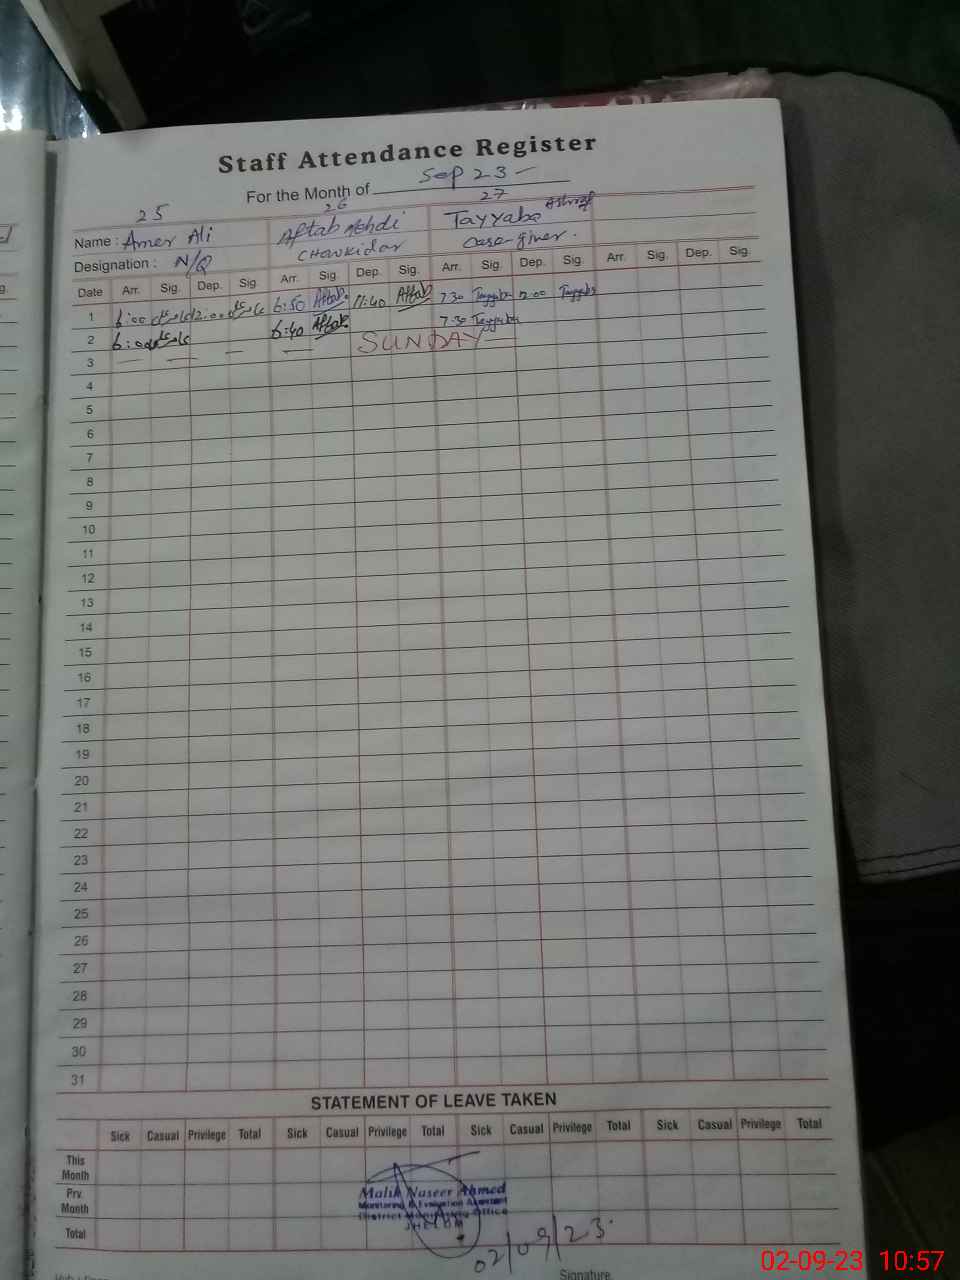 Staff Attendance Register
For the Month of Sep 23 -
25 26 27
Name : Amer Ali Aftab Mehdi Tayyaba Ashraf
Designation : N/Q CHOWKIDAR
Date Arr. Sig. Dep. Sig. Arr. Sig. Dep. Sig. Arr. Sig. Dep. Sig. Arr. Sig. Dep. Sig.
1 6:00 12:00 6:50 Aftab 11:40 Aftab 7:30 Tayyaba 12:00 Tayyaba
2 6:00 6:40 Aftab 7:30 Tayyaba
3 — — — — SUNDAY —
4
5
6
7
8
9
10
11
12
13
14
15
16
17
18
19
20
21
22
23
24
25
26
27
28
29
30
31
STATEMENT OF LEAVE TAKEN
Sick Casual Privilege Total Sick Casual Privilege Total Sick Casual Privilege Total Sick Casual Privilege Total
This Month
Prv. Month
Total
Malik Naseer Ahmed
Monitoring & Evaluation Assistant
District Monitoring Office
JHELUM
02/09/23
Signature.
02-09-23 10:57